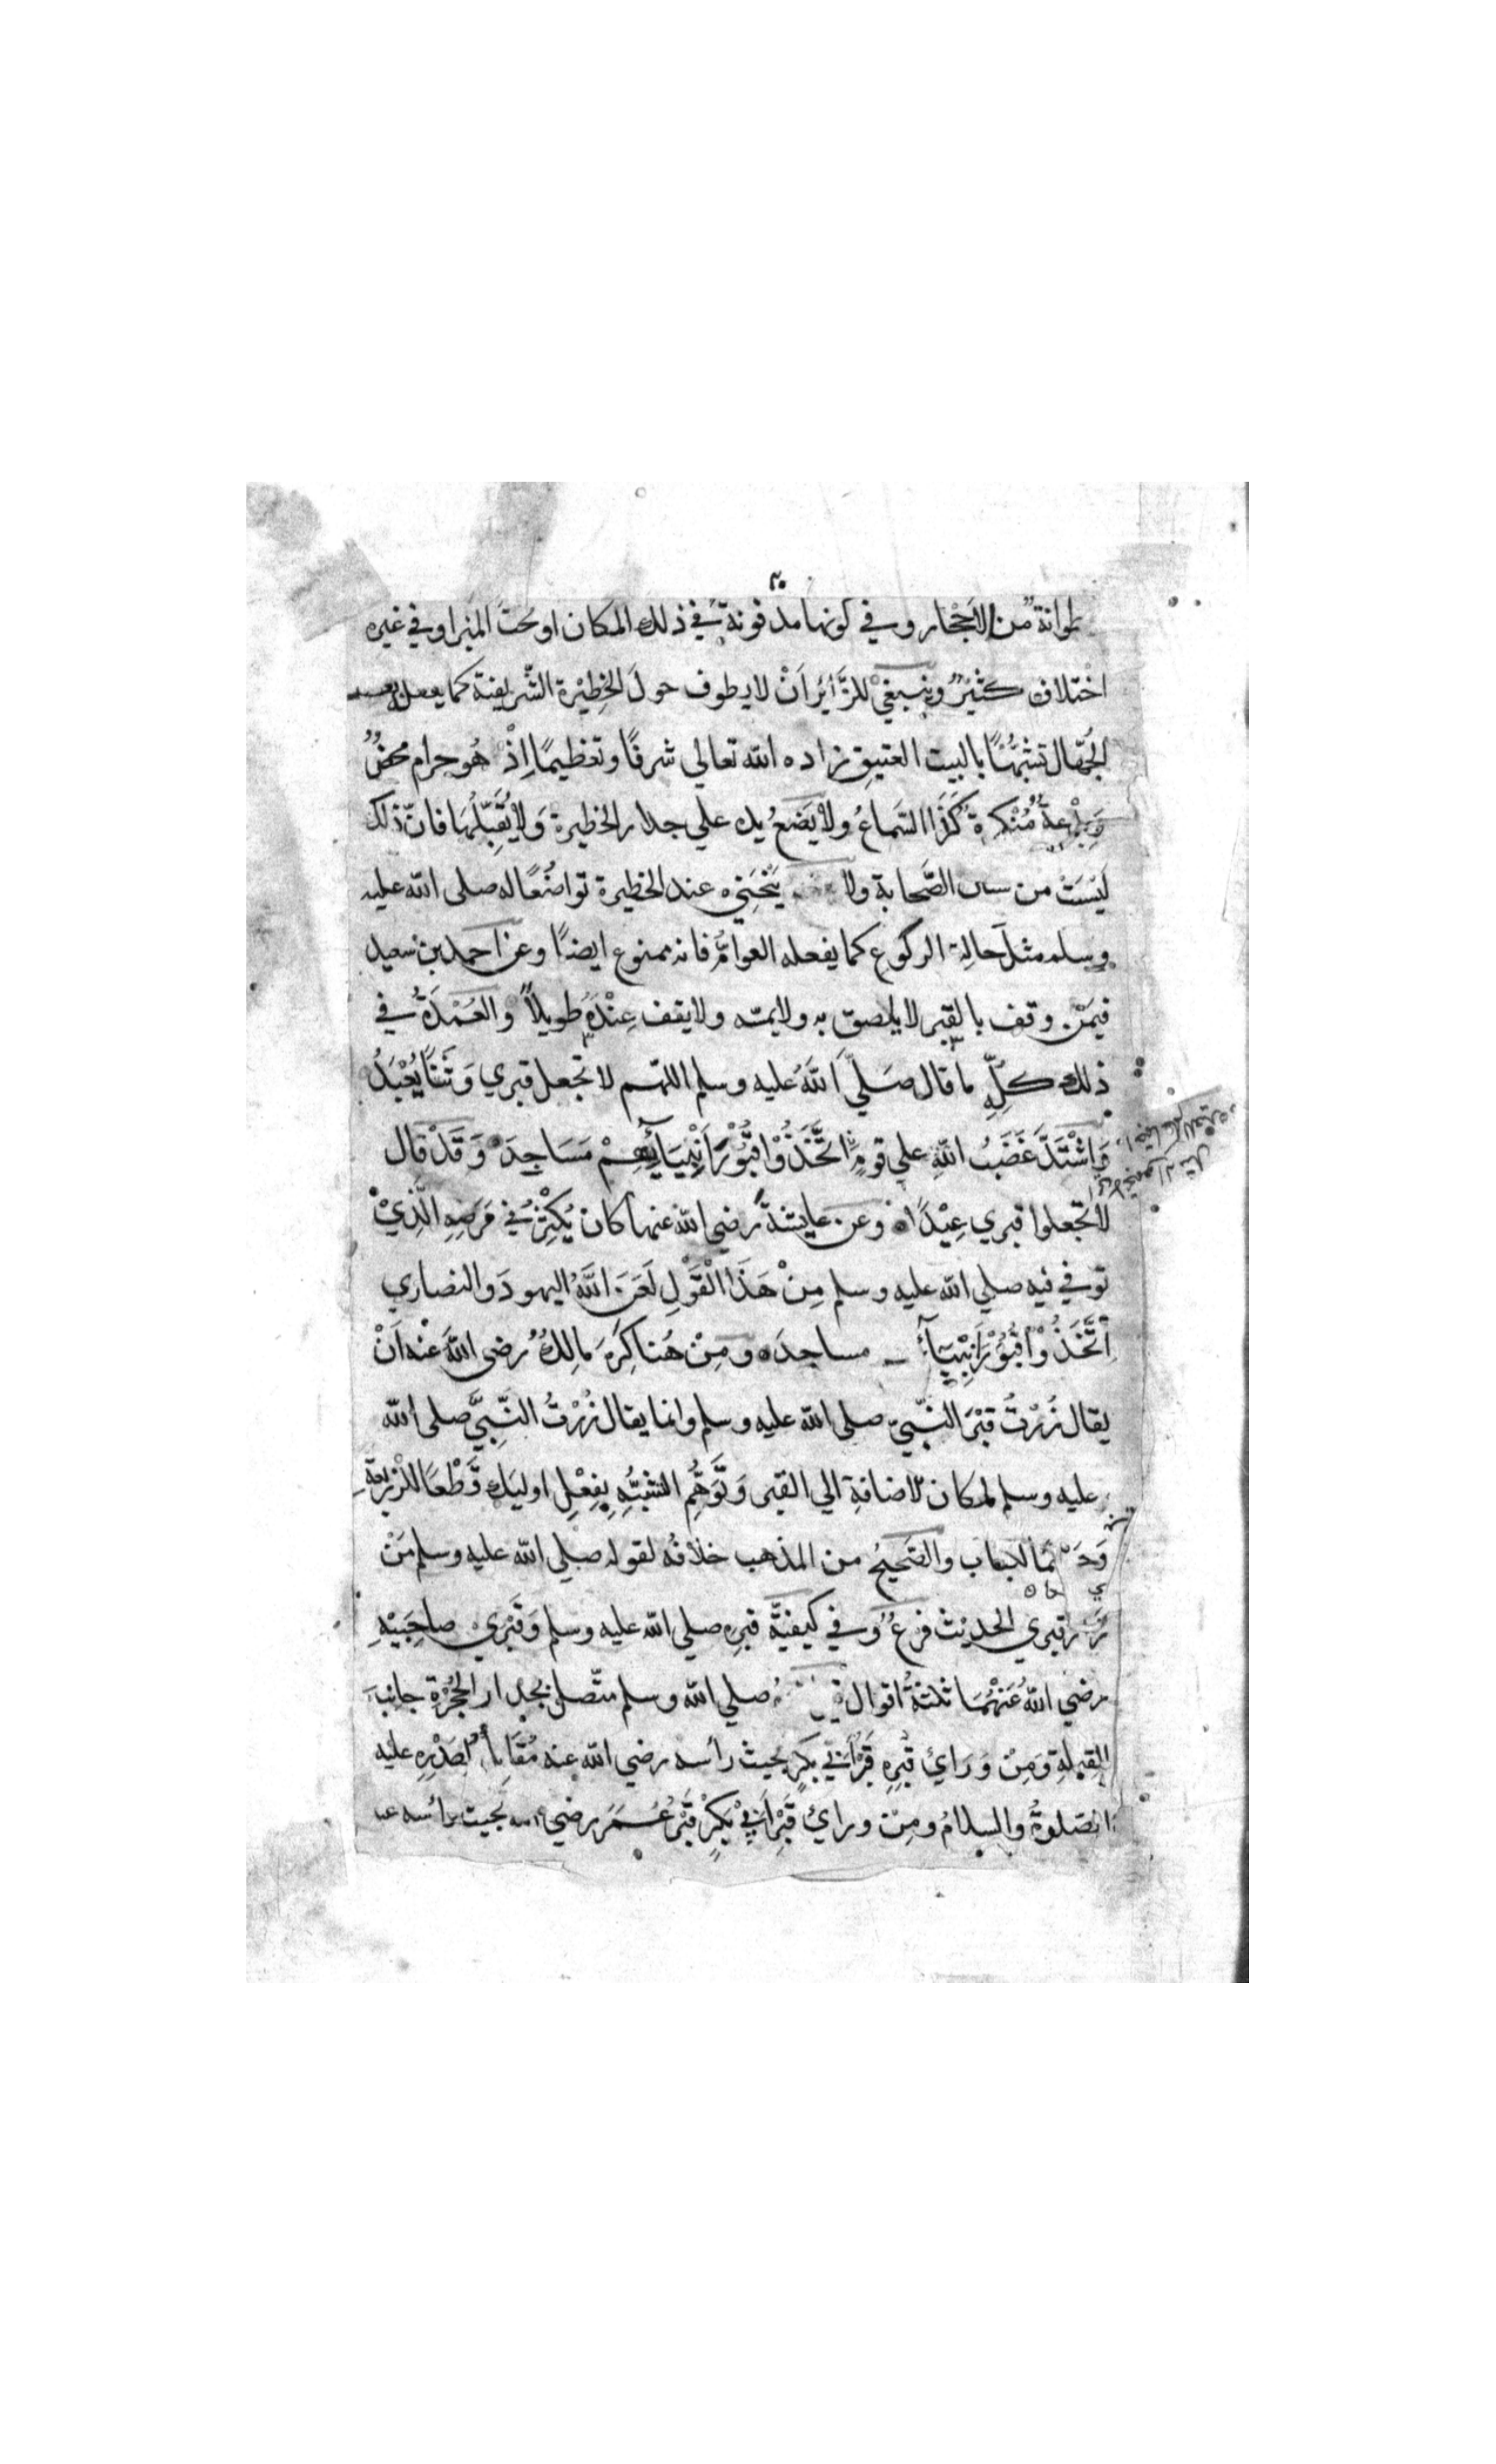 ٢٠
طوانة من الاحجار وفي كونها مدفونة في ذلك المكان او تحت المنبر او في غيره
اختلاف كثير وينبغي للزائر ان لا يطوف حول الخطيرة الشريفة كما يفعل بعض
الجهال تشبهًا بالبيت العتيق زاده الله تعالي شرفًا وتعظيمًا اذ هو حرام محض
وبدعة منكرة كذا السماع ولا يضع يده علي جدار الخطيرة ولا يقبلها فان ذلك
ليست من الصحابة ولا ينحني عند الخطيرة تواضعًا له صلى الله عليه
وسلم مثل حالة الركوع كما يفعله العوام فانه ممنوع ايضا وعن احمد بن سعيد
فيمن وقف بالقبر لا يلصق به ولا يمسه ولا يقف عنده طويلاً والعمدة في
ذلك كله ما قال صلي الله عليه وسلم اللهم لا تجعل قبري وثنًا يعبد
واشتد غضب الله علي قوم اتخذوا قبور انبيائهم مساجد وقد قال
لا تجعلوا قبري عيدًا وعن عايشة رضي الله عنها كان يكثر في مرضه الذي
توفي فيه صلي الله عليه وسلم من هذا القول لعن الله اليهود والنصاري
اتخذوا قبور انبياء مساجد ومن هنا كره مالك رضى الله عنه ان
يقال زرت قبر النبي صلى الله عليه وسلم وانما يقال زرت النبي صلى الله
عليه وسلم لمكان الاضافة الي القبر وتوهم التشبه بفعل اوليك قطعا للذريعة
وحسما للباب والصحيح من المذهب خلافه لقوله صلي الله عليه وسلم من
زار قبري الحديث فرع وفي كيفية قبره صلي الله عليه وسلم وقبري صاحبيه
رضي الله عنهما ثلثة اقوال صلي الله وسلم متصل بجدار الحجرة جانب
القبلة ومن وراي قبره قبر ابي بكر بحيث رأسه رضي الله عنه مقابل لصدره عليه
الصلوة والسلام ومن وراي قبر ابي بكر قبر عمر رضي الله بحيث رأسه